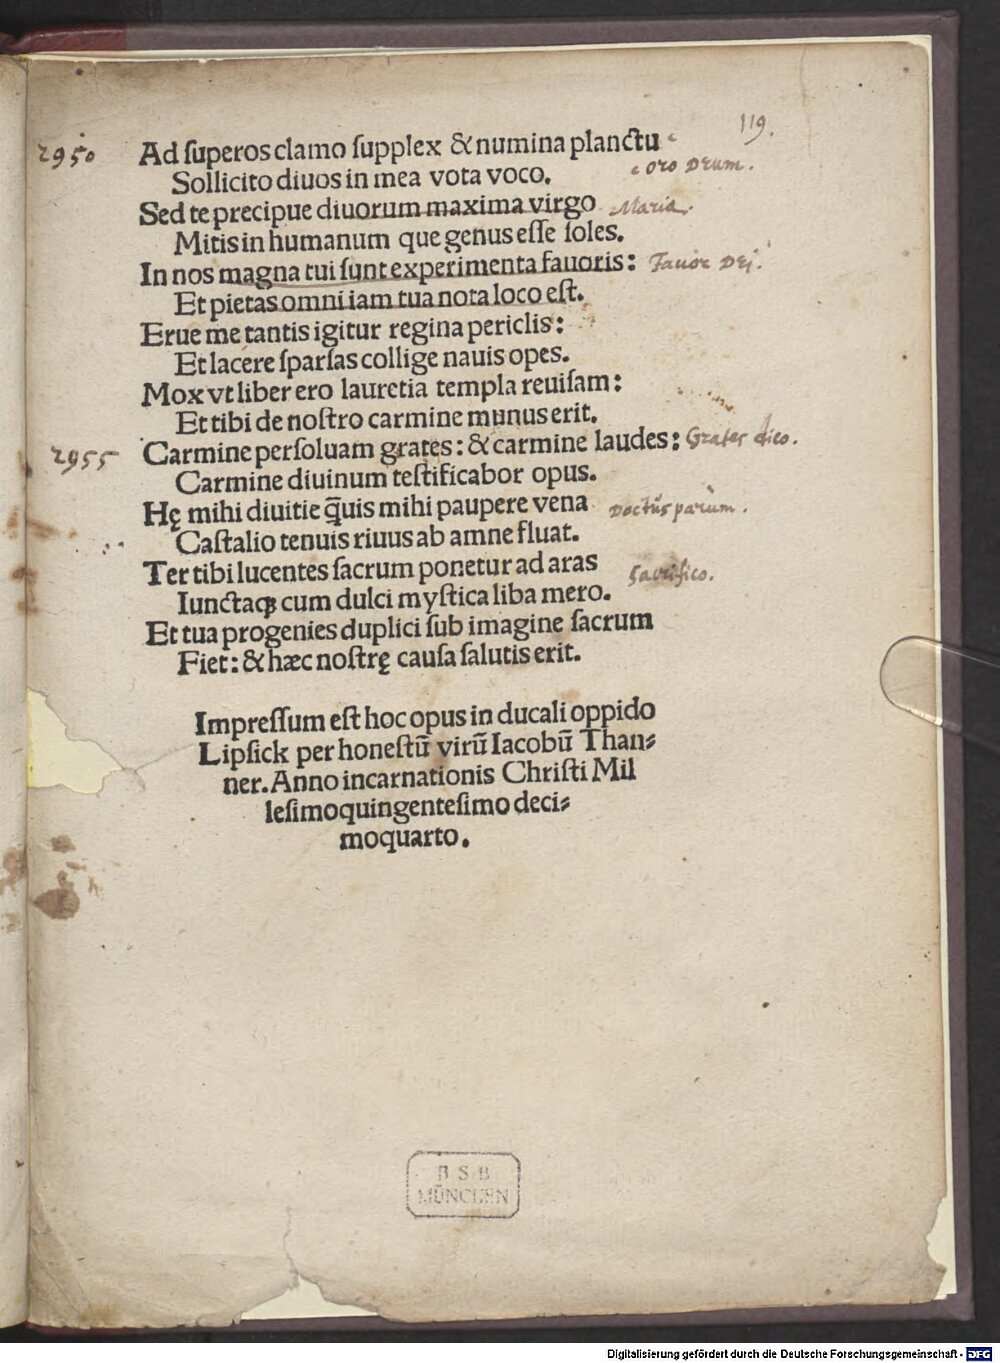 119.
2950 Ad ſuperos clamo ſupplex & numina planctu
Sollicito diuos in mea vota voco. oro Deum.
Sed te precipue diuorum maxima virgo Maria.
Mitis in humanum que genus eſſe ſoles.
In nos magna tui ſunt experimenta fauoris: Fauor Dei.
Et pietas omni iam tua nota loco eſt.
Erue me tantis igitur regina periclis:
Et lacere ſparſas collige nauis opes.
Mox vt liber ero lauretia templa reuiſam:
Et tibi de noſtro carmine munus erit.
2955 Carmine perſoluam grates: & carmine laudes: Grates dico.
Carmine diuinum teſtificabor opus.
Hę mihi diuitie q̃uis mihi paupere vena Doctus parum.
Caſtalio tenuis riuus ab amne fluat.
Ter tibi lucentes ſacrum ponetur ad aras Sacrifico.
Iunctaqꝫ cum dulci myſtica liba mero.
Et tua progenies duplici ſub imagine ſacrum
Fiet: & hæc noſtrę cauſa ſalutis erit.
Impreſſum eſt hoc opus in ducali oppido
Lipſick per honeſtū virū Iacobū Than⸗
ner. Anno incarnationis Chriſti Mil
leſimoquingenteſimo deci⸗
moquarto.
B S B
MÜNCHEN
Digitalisierung gefördert durch die Deutsche Forschungsgemeinschaft - DFG